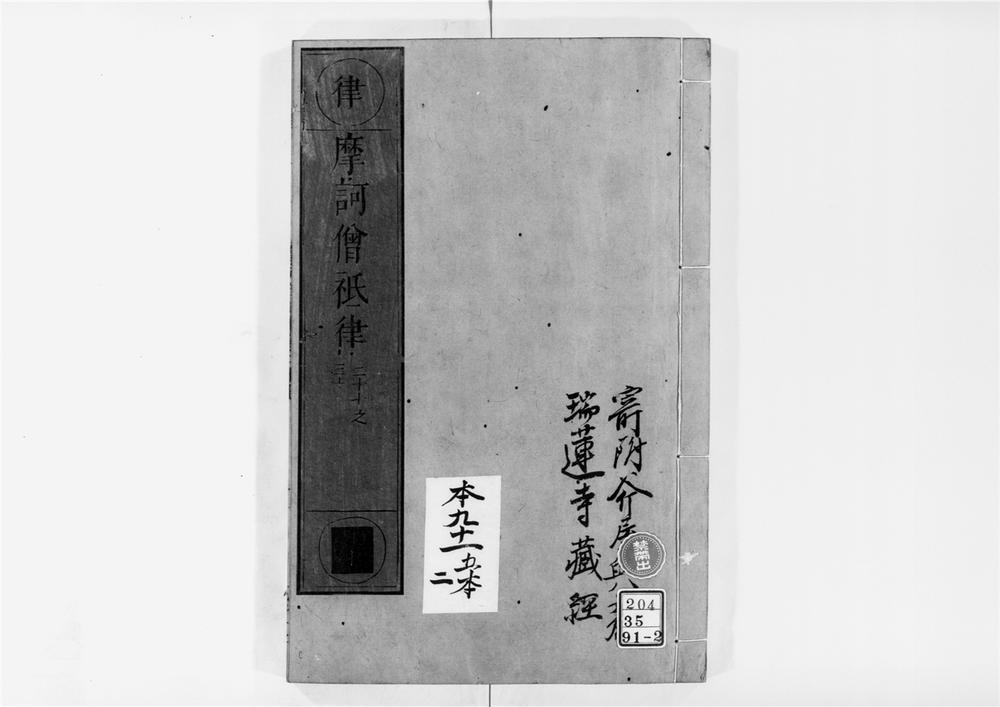 律
摩訶僧祇律
二十之
本九十一
五本
二
寄附
瑞蓮寺藏經
禁帶出
204
35
91-2